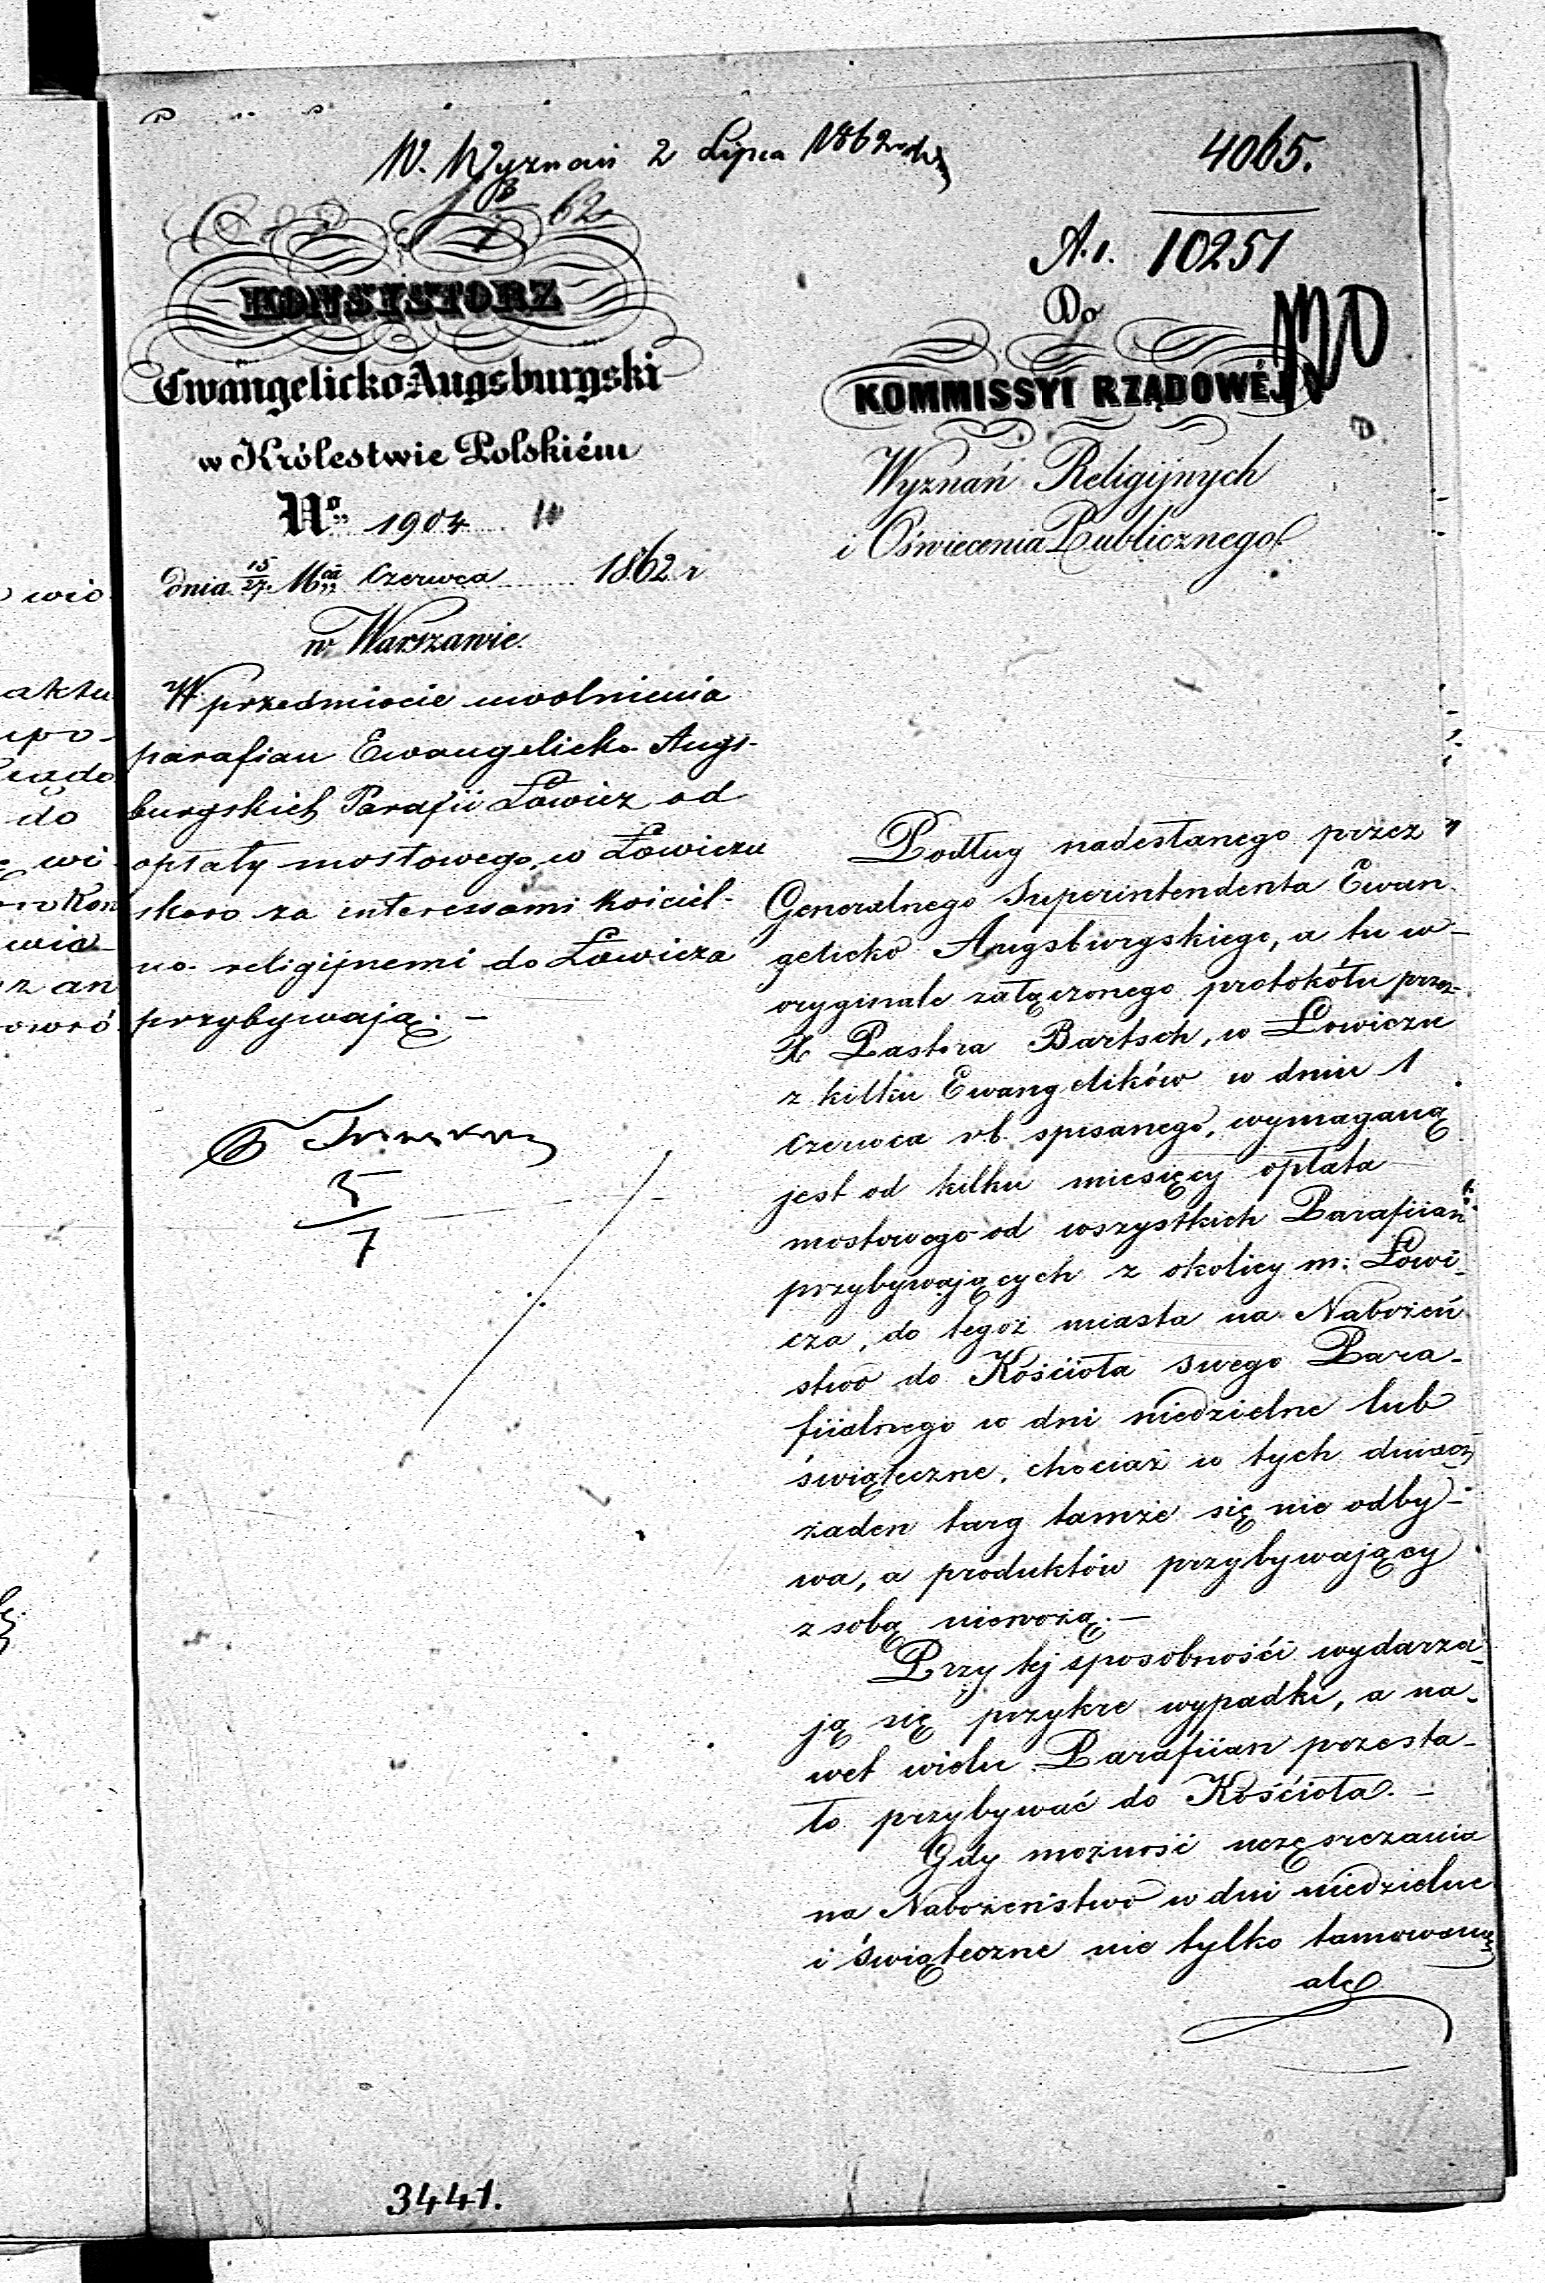 W. Wyznań 2 Lipca 1862
4065.
A.1. 10251
62
KONSYSTORZ
Ewangelicko Augsburgski
w Królestwie Polskiém
No 1904
dnia 15/27 Mca Czerwca 1862 r
w Warszawie.
W przedmiocie uwolnienia
parafian Ewangelicko Augs-
burgskich Parafii Łowicz od
opłaty mostowego, w Łowiczu
skoro za interessami kościel-
no-religijnemi do Łowicza
przybywają. —
5
7
Do
KOMMISSYI RZĄDOWÉJ
Wyznań Religijnych
i Oświecenia Publicznego
Podług nadesłanego przez
Generalnego Superintendenta Ewan
gelicko Augsburgskiego, a tu w
oryginale załączonego protokółu przez
X Pastora Bartsch, w Łowiczu
z kilku Ewangelików w dniu 1
Czerwca rb. spisanego, wymaganą
jest od kilku miesięcy opłata
mostowego od wszystkich Parafiian
przybywających z okolicy m: Łowi-
cza, do tegoż miasta na Nabożeń
stwo do Kościoła swego Para-
fiialnego w dni niedzielne lub
świąteczne, chociaż w tych dniach
żaden targ tamże się nie odby-
wa, a produktów przybywający
z sobą niewożą. —
Przy tej sposobności wydarza-
ją się przykre wypadki, a na-
wet wielu Parafiian przesta-
ło przybywać do Kościoła. —
Gdy możność uczęszczania
na Nabożeństwo w dni niedzielne
i świąteczne nie tylko tamowaną
ale
3441.
wio
aktu
upo-
do
wi
wia
z an
owró